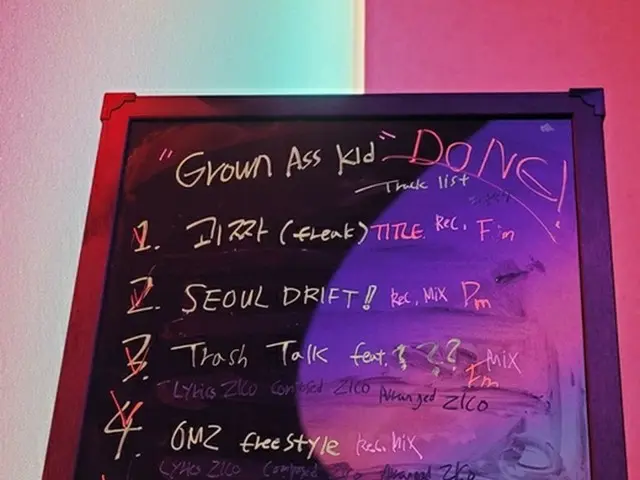 "Grown Ass Kid" DONE!
Track list
1. 괴짜 (freak) TITLE Rec, Fm
2. SEOUL DRIFT! Rec, Mix Dm
3. Trash Talk feat. ??? Mix Fm
Lyrics ZICO Composed ZICO Arranged ZICO
4. OMZ freestyle Rec. Mix
Lyrics ZICO Composed ZICO Arranged ZICO